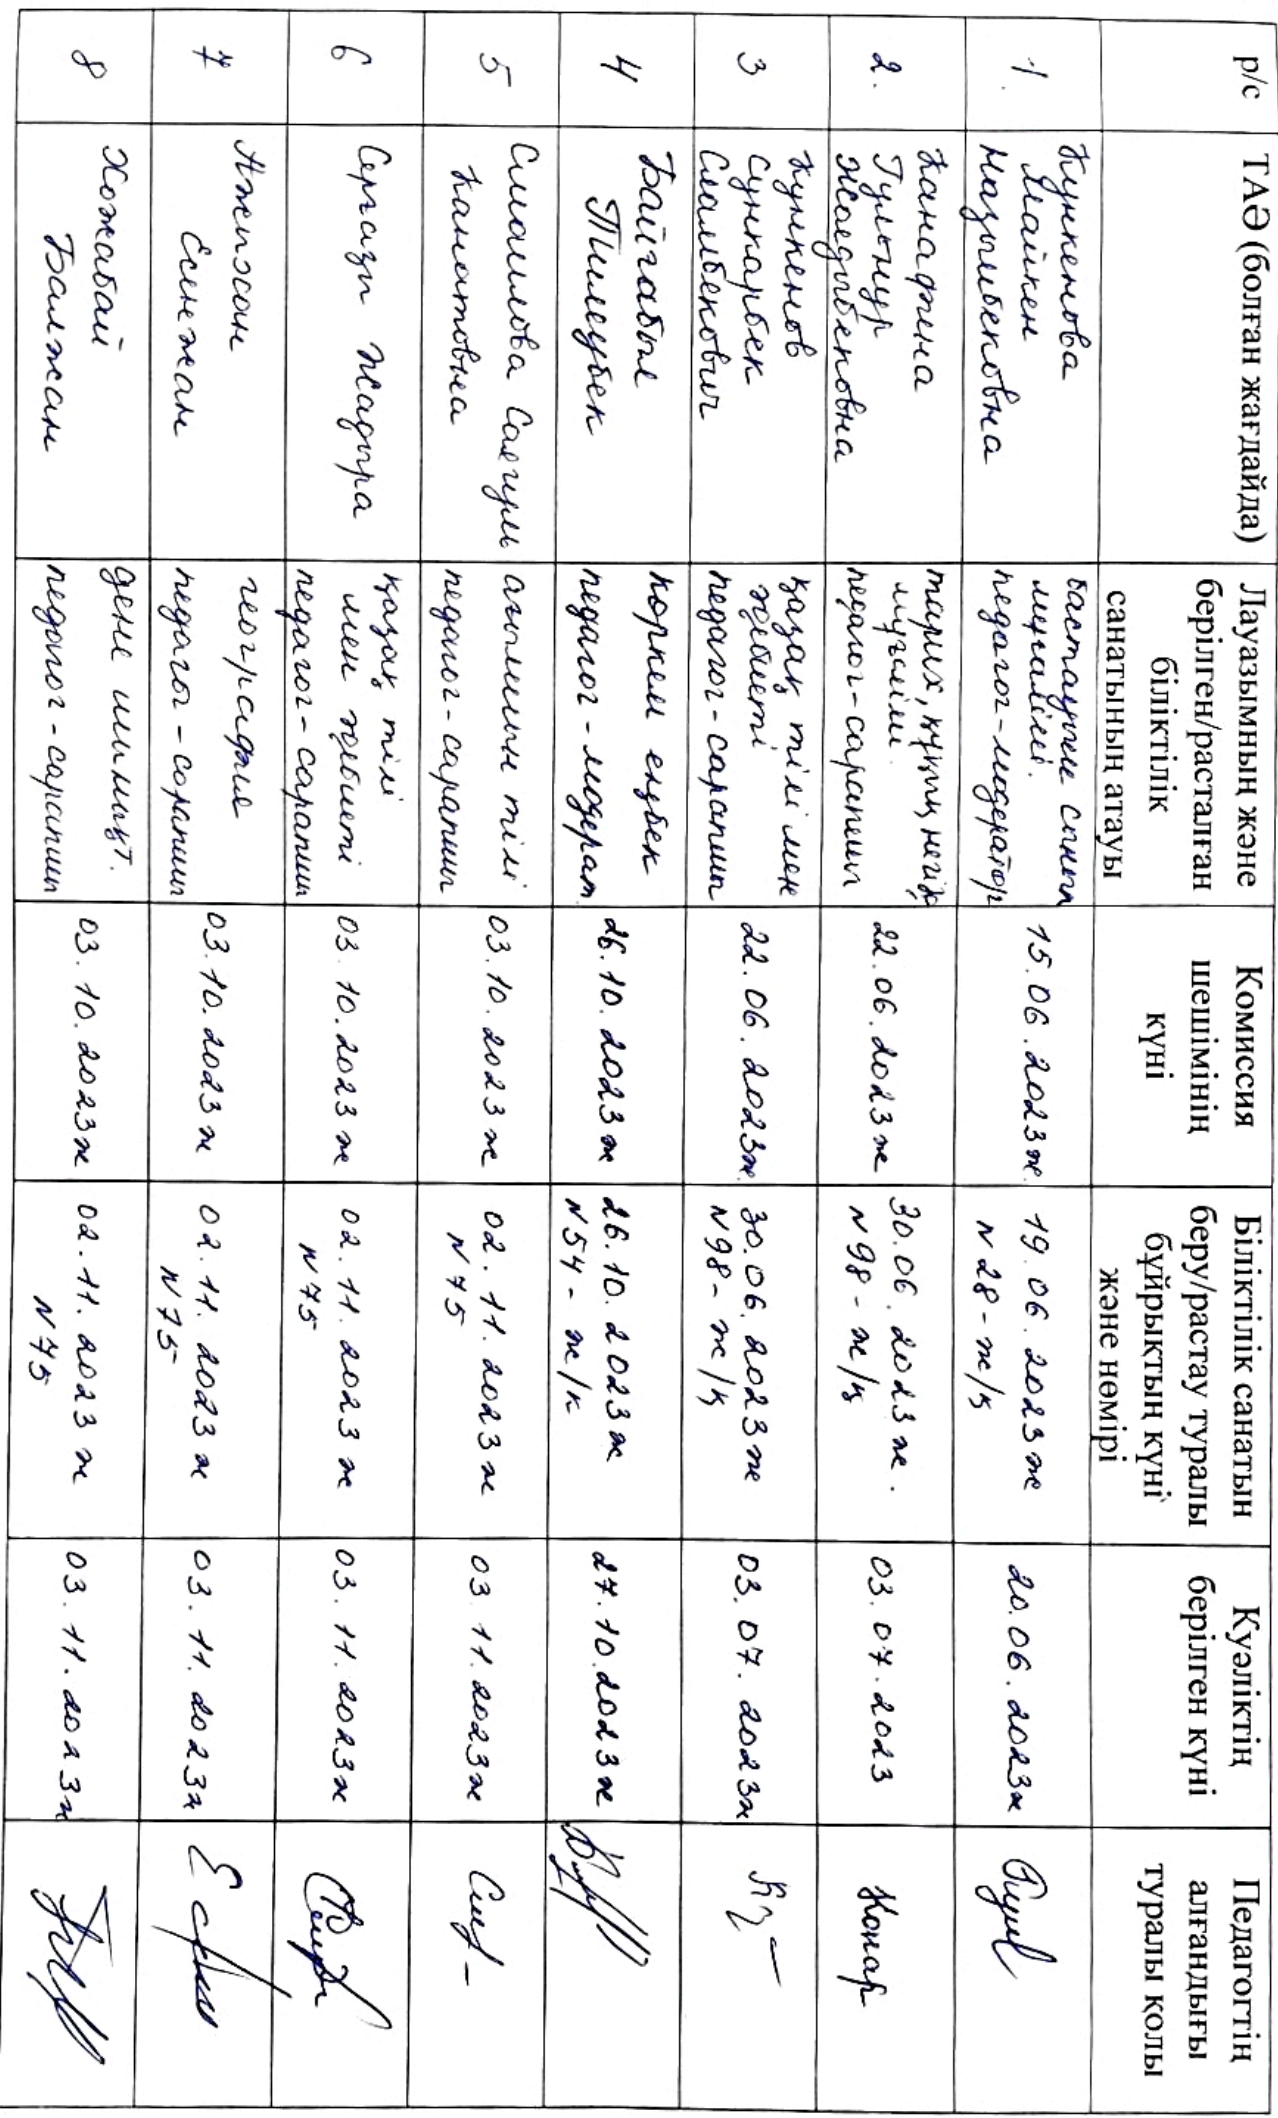 р/с
ТАӘ (болған жағдайда)
Лауазымның және
берілген/расталған
біліктілік
санатының атауы
Комиссия
шешімінің
күні
Біліктілік санатын
беру/растау туралы
бұйрықтың күні
және нөмірі
Куәліктің
берілген күні
Педагогтің
алғандығы
туралы қолы
1.
Кункенова
Майкен
Назымбековна
бастауыш сынып
мұғалімі.
педагог-модератор
15.06.2023ж.
19.06.2023ж
N28-ж/қ
20.06.2023ж
2.
Канафина
Гульнур
Жаедыбековна
тарих, құқық негізі
мұғалімі.
педагог-сарапшы
22.06.2023ж
30.06.2023ж.
N98-ж/қ
03.07.2023
Конар
3
Кункенов
Сункарбек
Сламбекович
қазақ тілі мен
әдебиеті
педагог-сарапшы
22.06.2023ж.
30.06.2023ж
N98-ж/қ
03.07.2023ж
4
Байғабыл
Тілеубек
көркем еңбек
педагог-модерат
26.10.2023ж
26.10.2023ж
N54-ж/к
27.10.2023ж
5
Смаилова Салгуль
Канатовна
ағылшын тілі
педагог-сарапшы
03.10.2023ж
02.11.2023ж
N75
03.11.2023ж
6
Серғазы Жадыра
қазақ тілі
мен әдебиеті
педагог-сарапшы
03.10.2023ж
02.11.2023ж
N75
03.11.2023ж
7
Әжіжан
Есенжан
география
педагог-сарапшы
03.10.2023ж
02.11.2023ж
N75
03.11.2023ж
8
Хожабай
Балжан
дене шынықт.
педагог-сарапшы
03.10.2023ж
02.11.2023ж
N75
03.11.2023ж